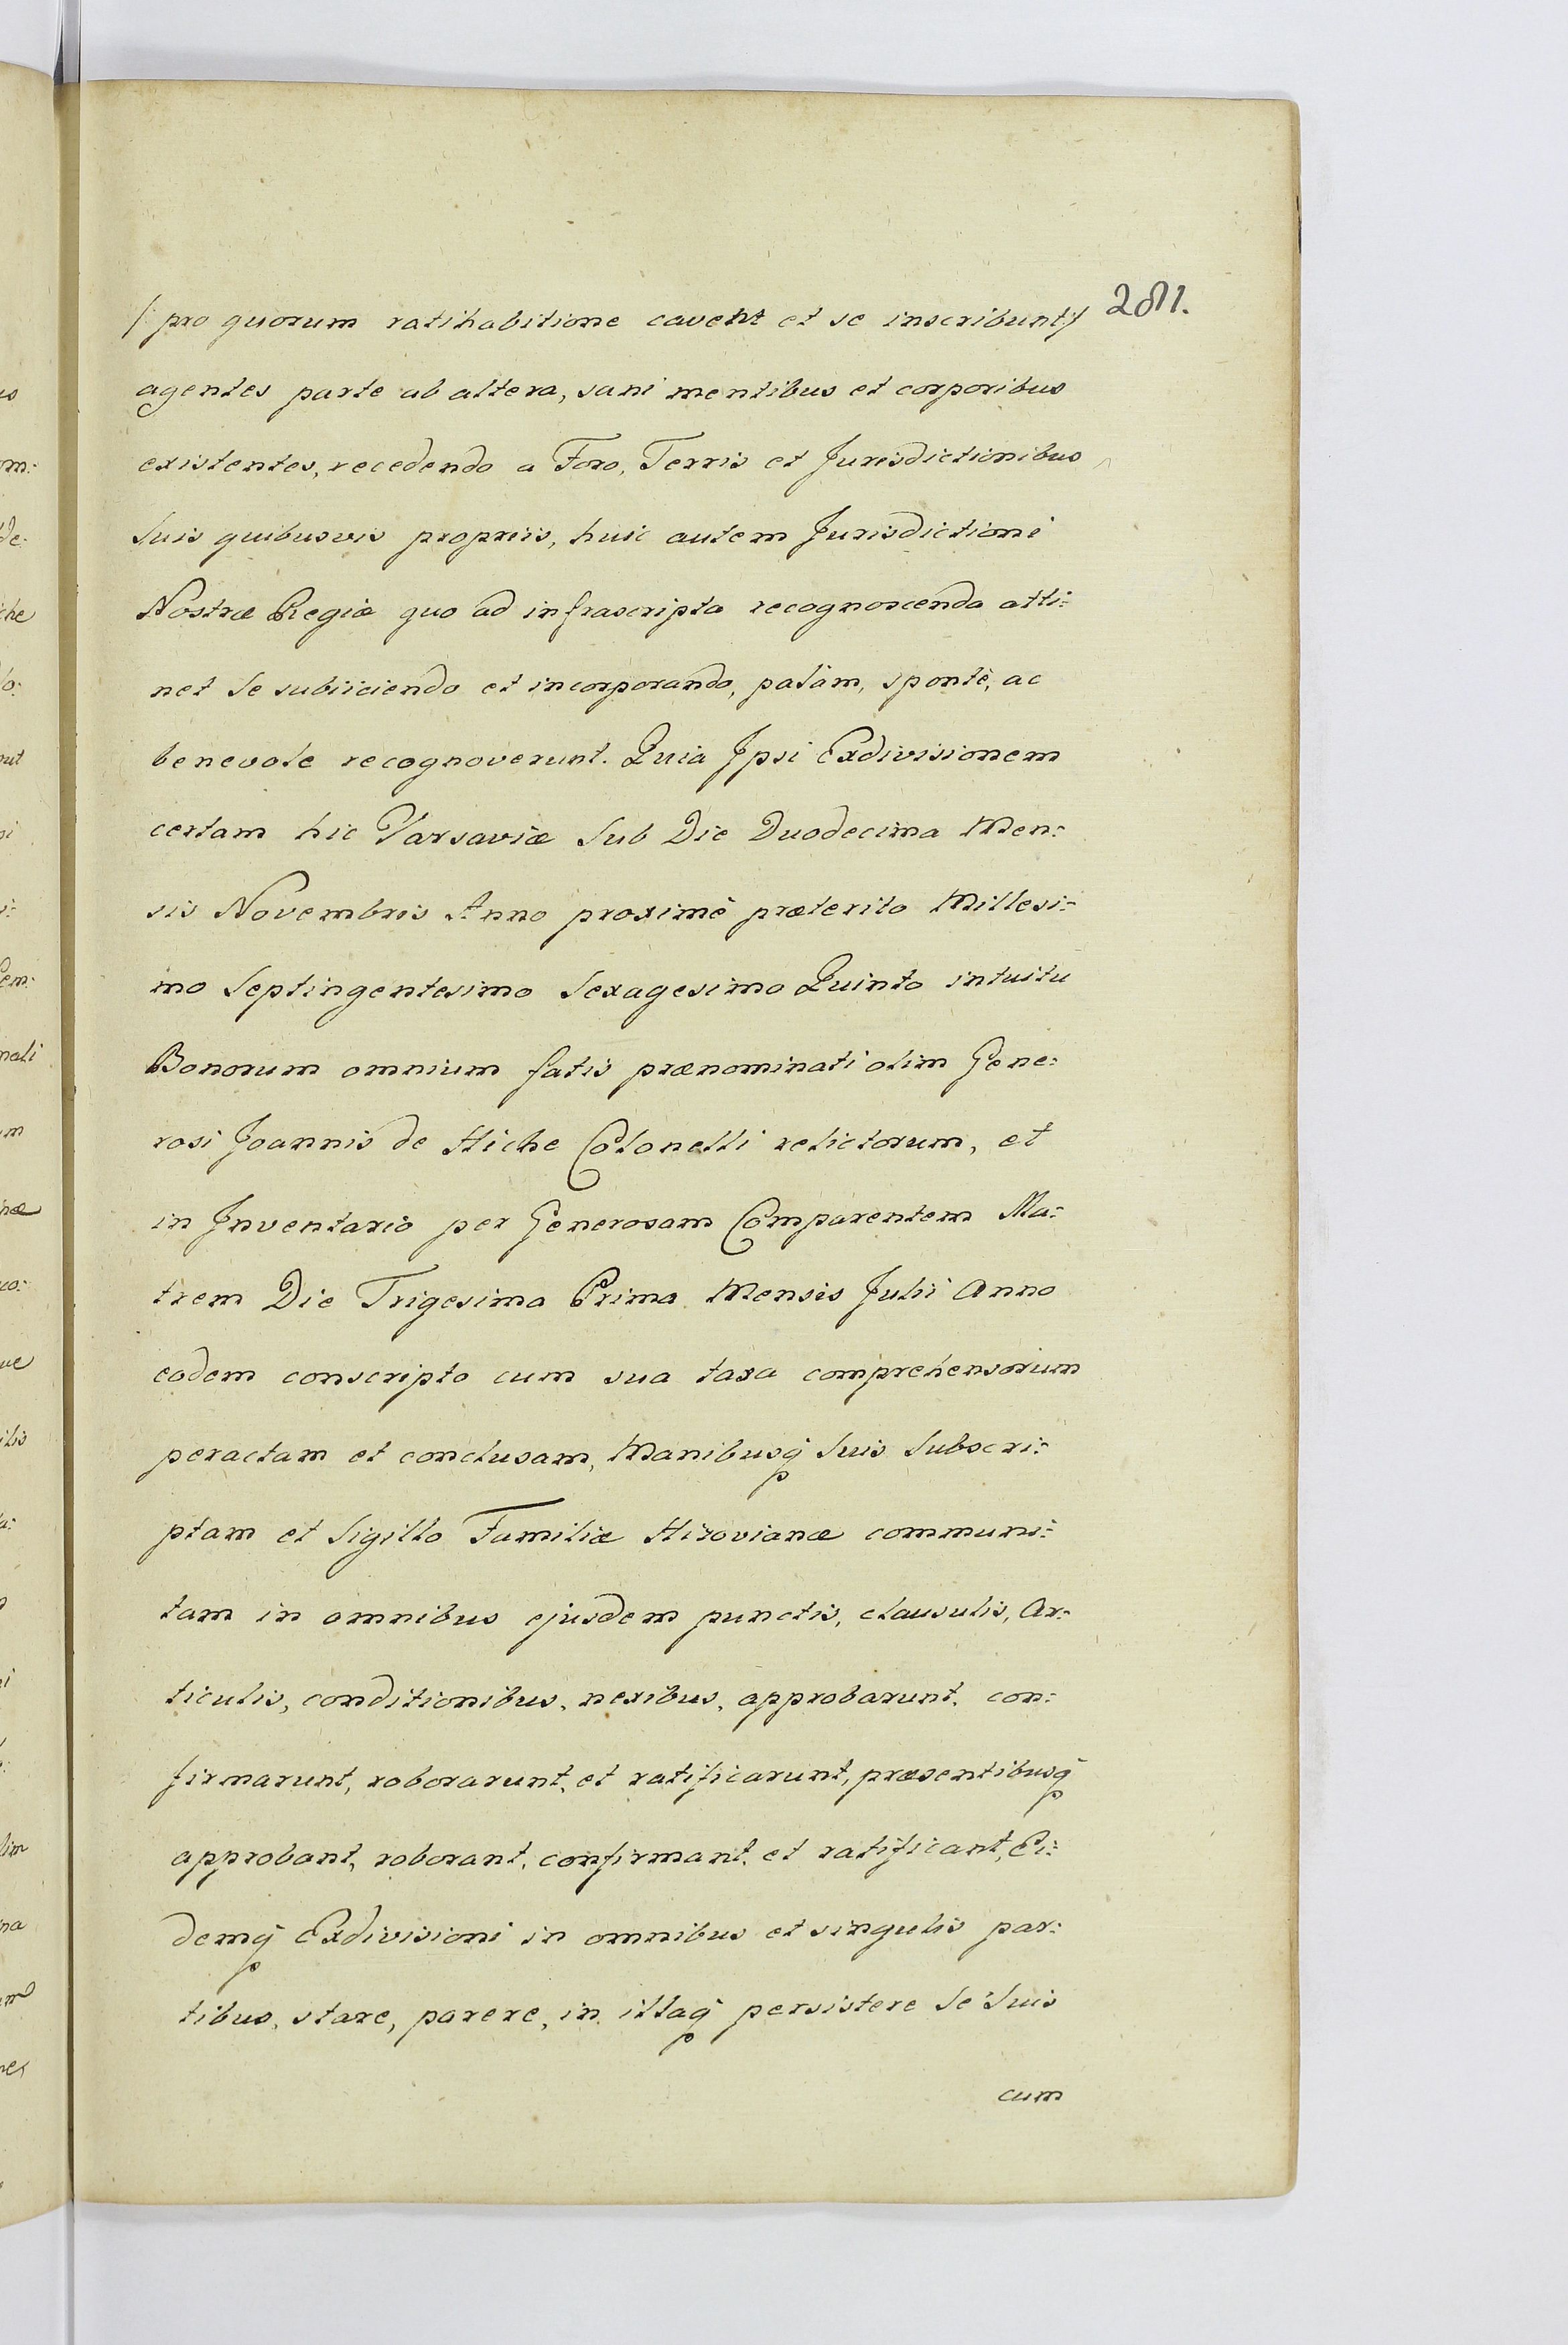 281.
/: pro quorum ratihabitione cavent et se inscribunt :/
agentes parte ab altera, sani mentibus et corporibus
existentes, recedendo a Foro, Terris et Jurisdictionibus
Suis quibusvis propriis, huic autem Jurisdictioni
Nostræ Regiæ quo ad infrascripta recognoscenda atti:
net Se subiiciendo et incorporando, palàm, spontè, ac
benevole recognoverunt. Quia Jpsi Exdivisionem
certam hic Varsaviæ Sub Die Duodecima Men:
sis Novembris Anno proximè præterito Millesi:
mo Septingentesimo Sexagesimo Quinto intuitu
Bonorum omnium fatis prænominati olim Gene:
rosi Joannis de Hiche Colonelli relictorum, et
in Jnventario per Generosam Comparentem Ma:
trem Die Trigesima Prima Mensis Julii Anno
eodem conscripto cum sua taxa comprehensorum
peractam et conclusam, Manibusq Suis Subscri:
ptam et Sigillo Familiæ Hizovianæ communi:
tam in omnibus ejusdem punctis, clausulis, Ar:
ticulis, conditionibus, nexibus, approbarunt, con:
firmarunt, roborarunt, et ratificarunt, præsentibusq
approbant, roborant, confirmant, et ratificant, Ei:
demq Exdivisioni in omnibus et singulis par:
tibus, stare, parere, in illaq persistere Se Suis
cum